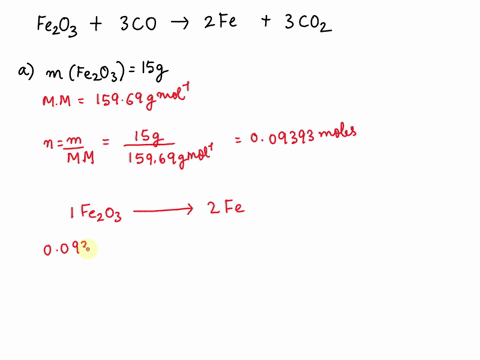 Fe₂O₃ + 3CO → 2Fe + 3CO₂
a) m (Fe₂O₃) = 15g
M.M = 159.69 g mol⁻¹
n = m/MM = 15g/159.69 g mol⁻¹ = 0.09393 moles
1 Fe₂O₃ → 2 Fe
0.093